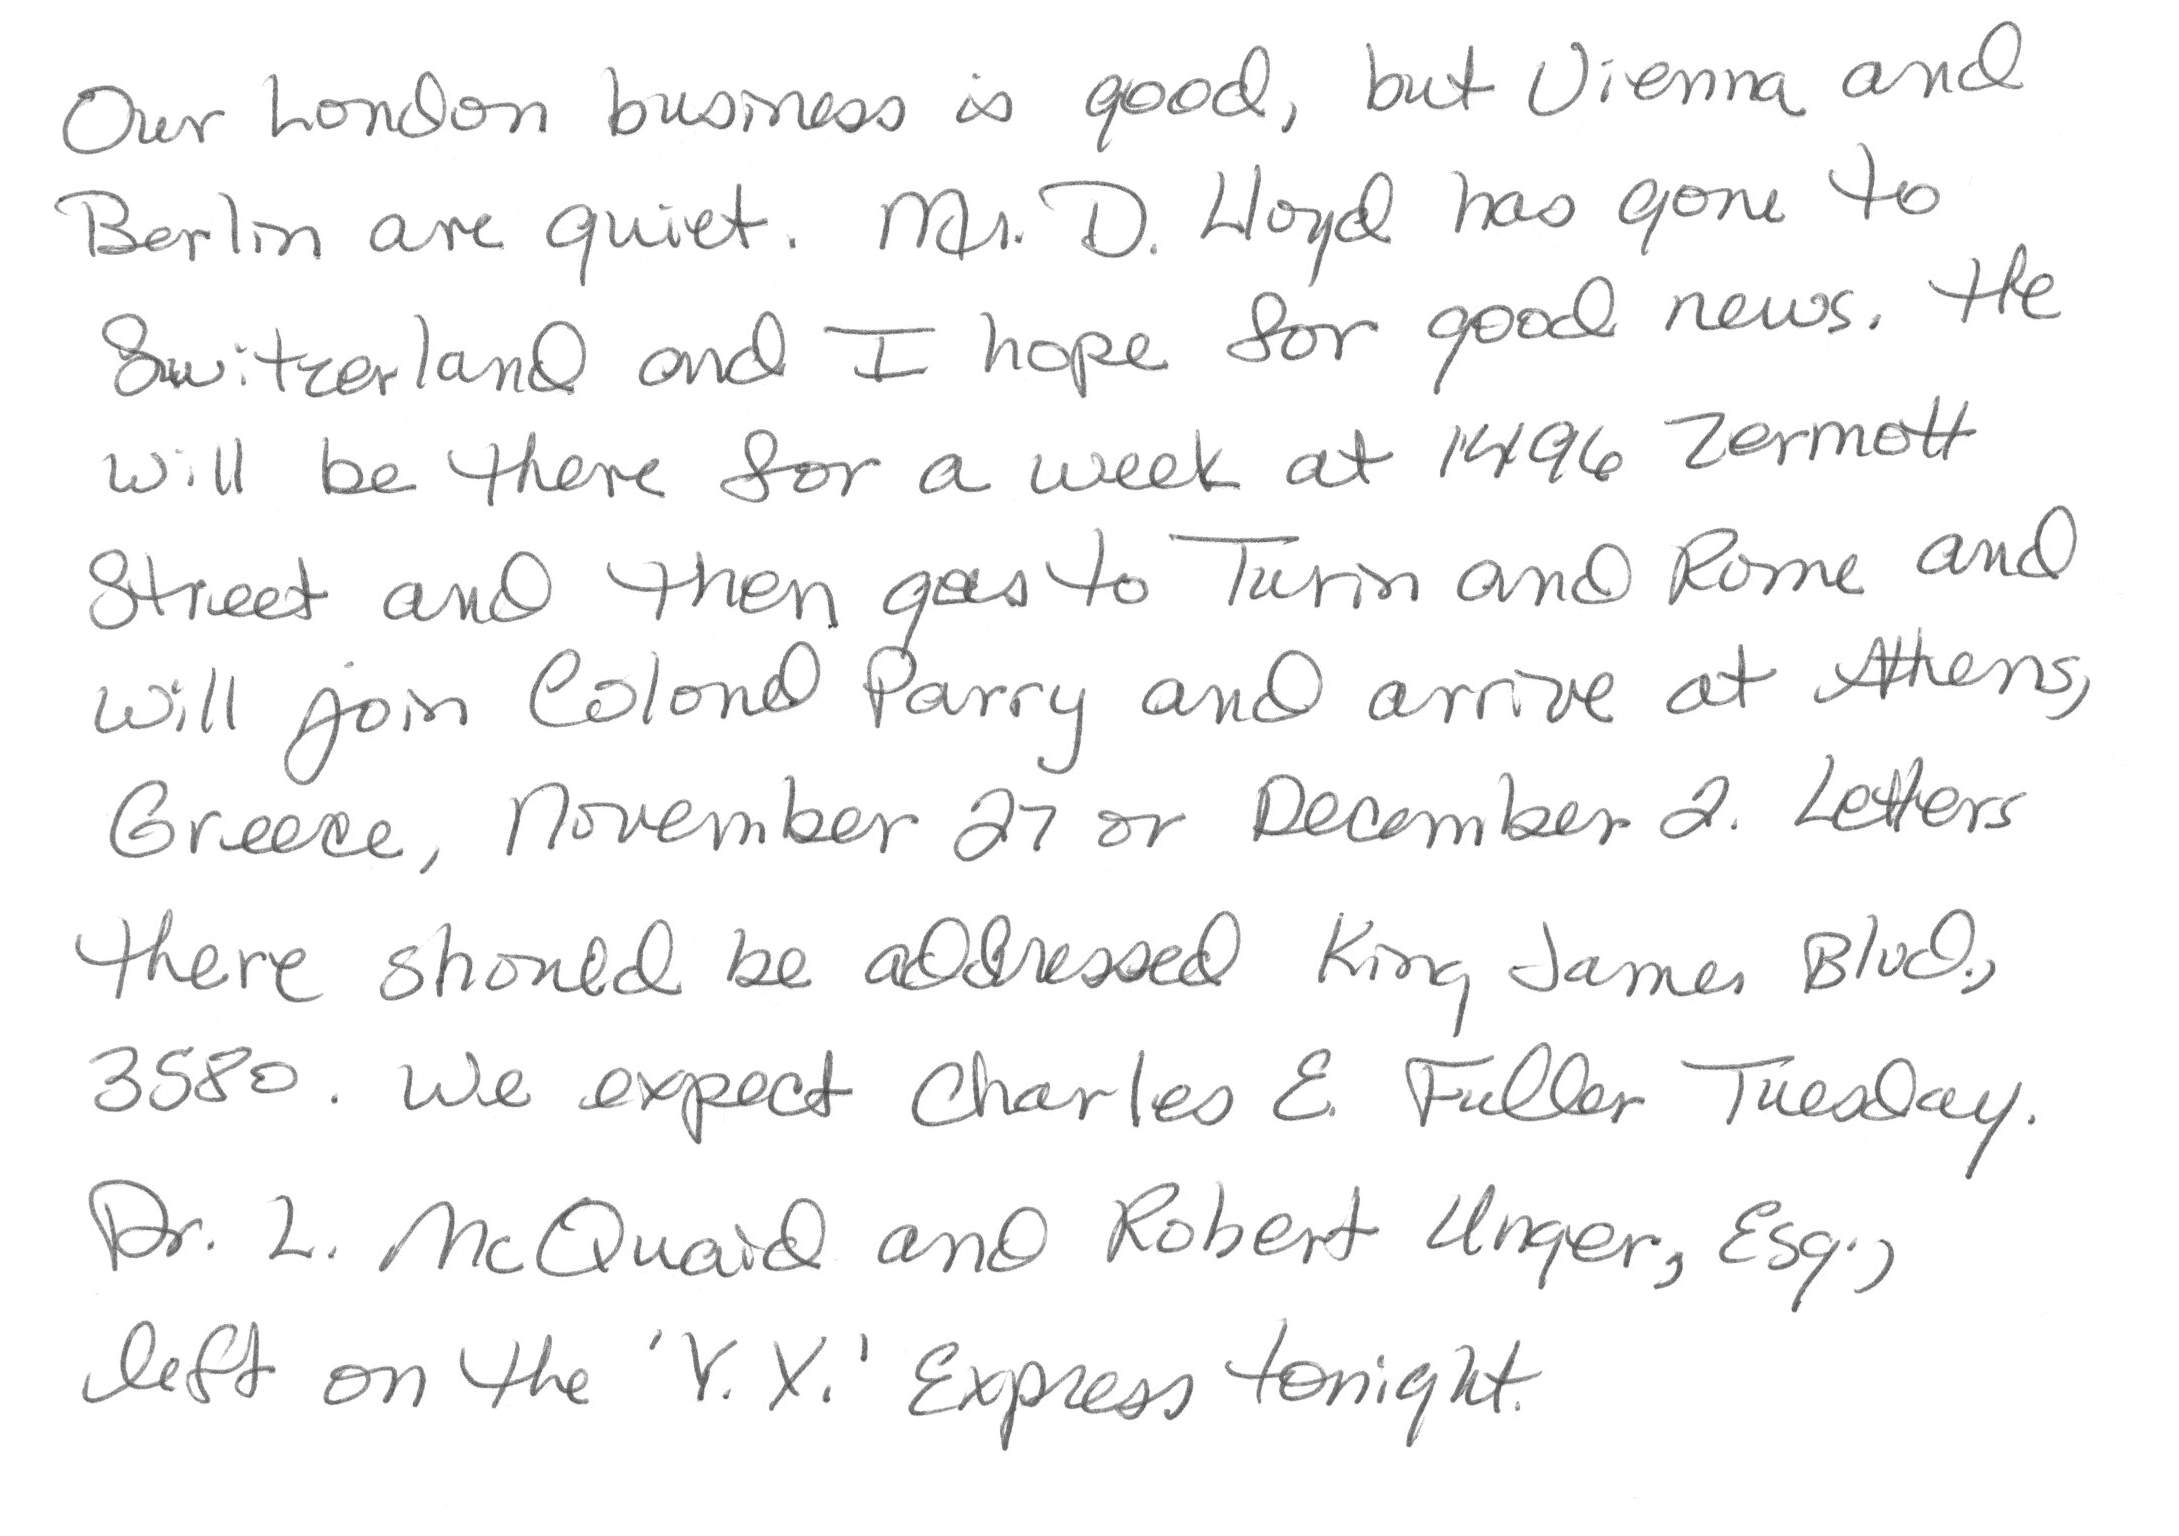 Our London business is good, but Vienna and
Berlin are quiet. Mr. D. Lloyd has gone to
Switzerland and I hope for good news. He
will be there for a week at 1496 Zermott
Street and then goes to Turin and Rome and
will join Colonel Parry and arrive at Athens,
Greece, November 27 or December 2. Letters
there should be addressed King James Blvd.,
3580. We expect Charles E. Fuller Tuesday.
Dr. L. McQuaid and Robert Unger, Esq.,
left on the 'Y. X.' Express tonight.